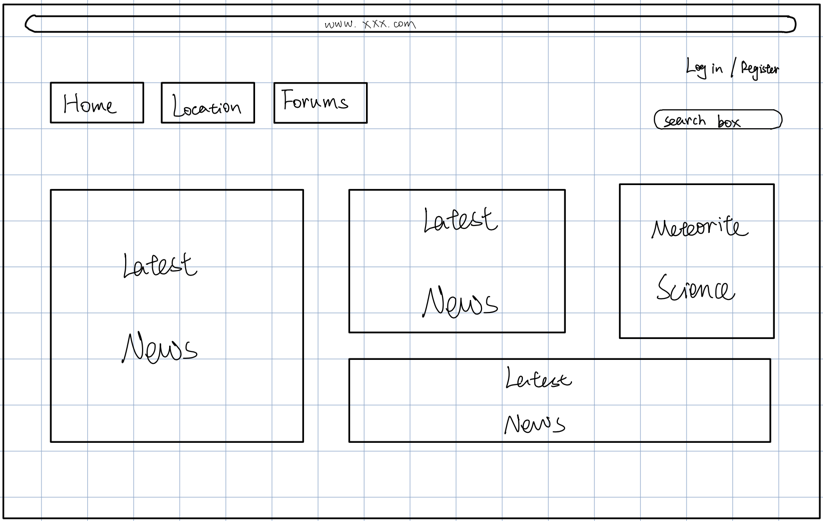 www.xxx.com
Log in / Register
Home
Location
Forums
search box
Latest
News
Latest
News
Meteorite
Science
Latest
News